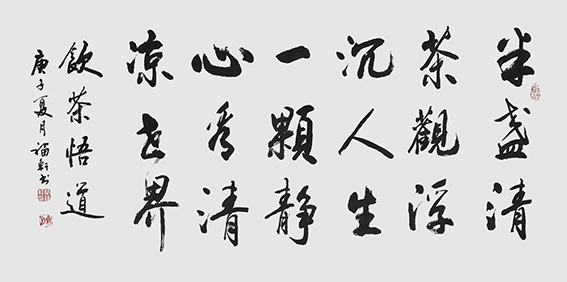 半盏清
茶觀浮
沉人生
一顆靜
心看清
凉世界
飲茶悟道
庚子夏月福軒书